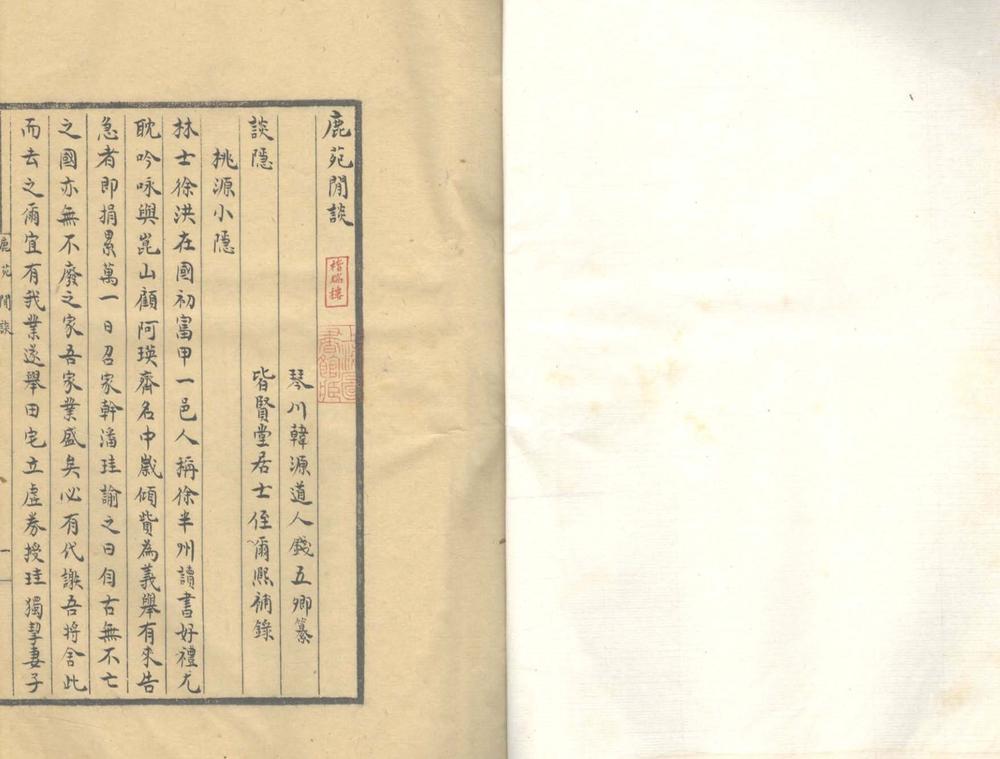 鹿苑閒談
琴川韓源道人錢五卿纂
談隱
皆賢堂居士侄爾熙補錄
桃源小隱
林士徐洪在國初富甲一邑人稱徐半州讀書好禮尤
耽吟咏與崑山顧阿瑛齊名中歲傾貲為義舉有來告
急者即捐累萬一日召家幹潘珪諭之曰自古無不亡
之國亦無不廢之家吾家業盛矣必有代謝吾將舍此
而去之爾宜有我業遂舉田宅立虛券授珪獨挈妻子
稽瑞樓
上海圖書館藏
鹿苑閒談
一